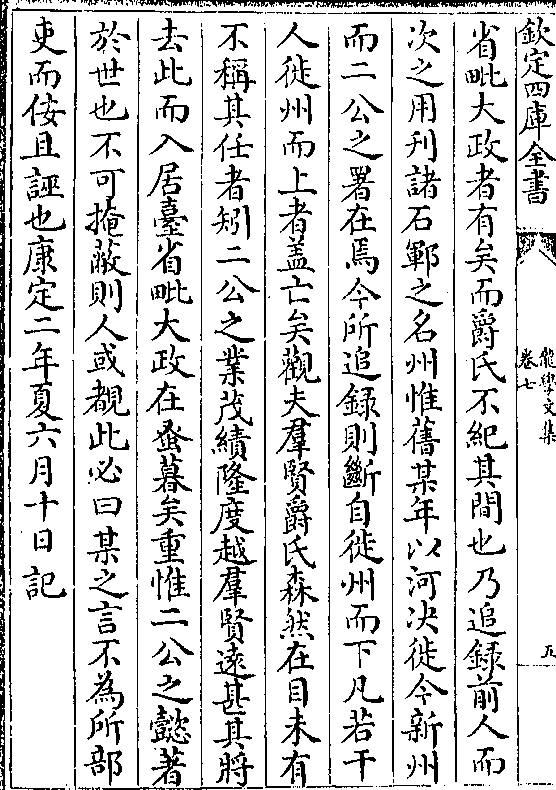 欽定四庫全書
龍學文集
卷七
五
省毗大政者有矣而爵氏不紀其間也乃追録前人而
次之用刋諸石鄆之名州惟舊某年以河决徙今新州
而二公之署在焉今所追録則斷自徙州而下凡若干
人徙州而上者盖亡矣觀夫羣賢爵氏森然在目未有
不稱其任者矧二公之業茂績隆度越羣賢遠甚其將
去此而入居臺省毗大政在蚤暮矣重惟二公之懿著
於世也不可掩蔽則人或覩此必曰某之言不為所部
吏而佞且誣也康定二年夏六月十日記